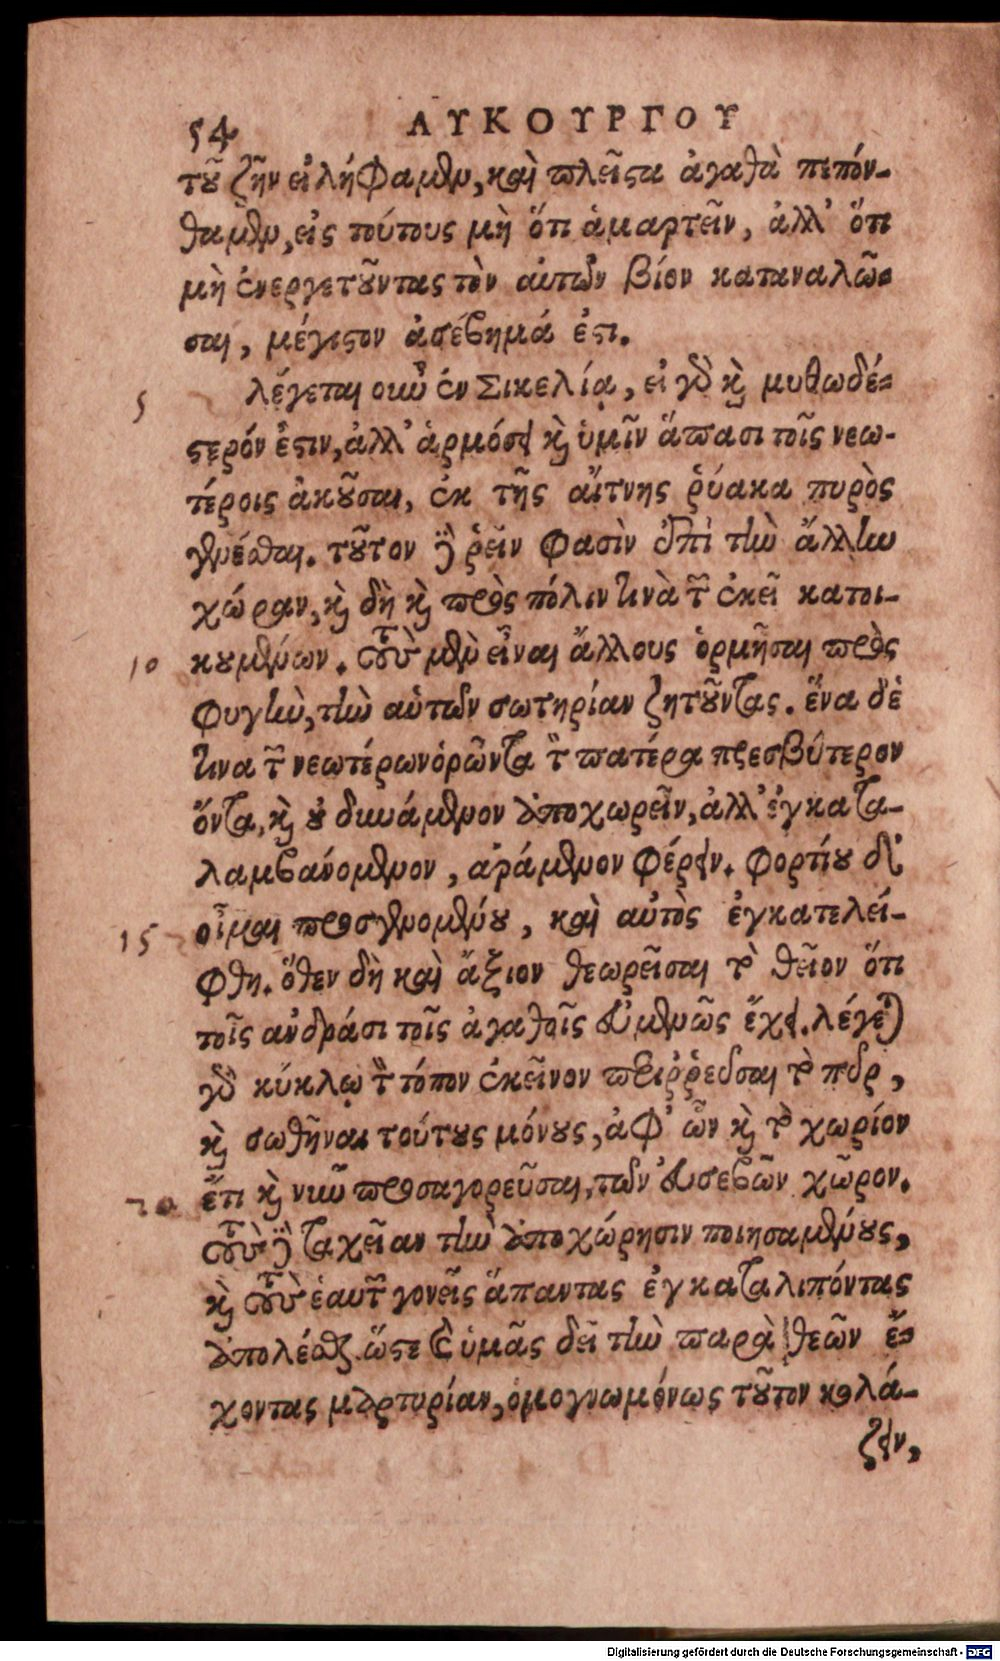 54 ΛΥΚΟΥΡΓΟΥ
τοῦ ζῆν εἰλήφαμεν, καὶ πλεῖστα ἀγαθὰ πεπόν-
θαμεν, εἰς τούτους μὴ ὅτι ἁμαρτεῖν, ἀλλ' ὅτι
μὴ ἐνεργετοῦντας τὸν αὑτῶν βίον καταναλῶ-
σαι, μέγιστον ἀσέβημά ἐστι.
5 λέγεται οὖν ἐν Σικελίᾳ, εἰ γὰρ καὶ μυθωδέ-
στερόν ἐστιν, ἀλλ' ἁρμόσει καὶ ὑμῖν ἅπασι τοῖς νεω-
τέροις ἀκοῦσαι, ἐκ τῆς αἴτνης ῥύακα πυρὸς
γενέσθαι. τοῦτον δὲ ῥεῖν φασὶν ἐπὶ τὴν ἄλλην
χώραν, καὶ δὴ καὶ πρὸς πόλιν τινὰ τῶν ἐκεῖ κατοι-
10 κουμένων. τοὺς μὲν εἶναι ἄλλους ὁρμῆσαι πρὸς
φυγὴν, τὴν αὑτῶν σωτηρίαν ζητοῦντας. ἕνα δέ
τινα τῶν νεωτέρων ὁρῶντα τὸν πατέρα πρεσβύτερον
ὄντα, καὶ οὐ δυνάμενον ἀποχωρεῖν, ἀλλ' ἐγκατα-
λαμβανόμενον, ἀράμενον φέρειν. φορτίου δ'
15 οἶμαι προσγενομένου, καὶ αὐτὸς ἐγκατελεί-
φθη. ὅθεν δὴ καὶ ἄξιον θεωρεῖσαι τὸ θεῖον ὅτι
τοῖς ἀνδράσι τοῖς ἀγαθοῖς εὐμενῶς ἔχει. λέγεται
γὰρ κύκλῳ τὸν τόπον ἐκεῖνον περιῤῥεῦσαι τὸ πῦρ,
καὶ σωθῆναι τούτους μόνους, ἀφ' ὧν καὶ τὸ χωρίον
20 ἔτι καὶ νῦν προσαγορεῦσαι, τῶν εὐσεβῶν χῶρον.
τοὺς δὲ ταχεῖαν τὴν ἀποχώρησιν ποιησαμένους,
καὶ τοὺς ἑαυτῶν γονεῖς ἅπαντας ἐγκαταλιπόντας
ἀπολέσθαι. ὥστε καὶ ὑμᾶς δεῖ τὴν παρὰ θεῶν ἔ-
χοντας μαρτυρίαν, ὁμογνωμόνως τοῦτον κολά-
ζειν,
Digitalisierung gefördert durch die Deutsche Forschungsgemeinschaft - DFG